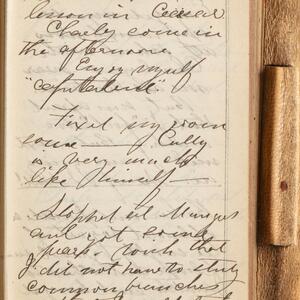 lesson in Ceasar
Charly come in
the afternoon
Enjoy myself
"capitalend".
Fixed my room
some — Cully
is very much
like himself —
Stophet at Mungers
and got some
pears. Wish that
I did not have to study
common branches